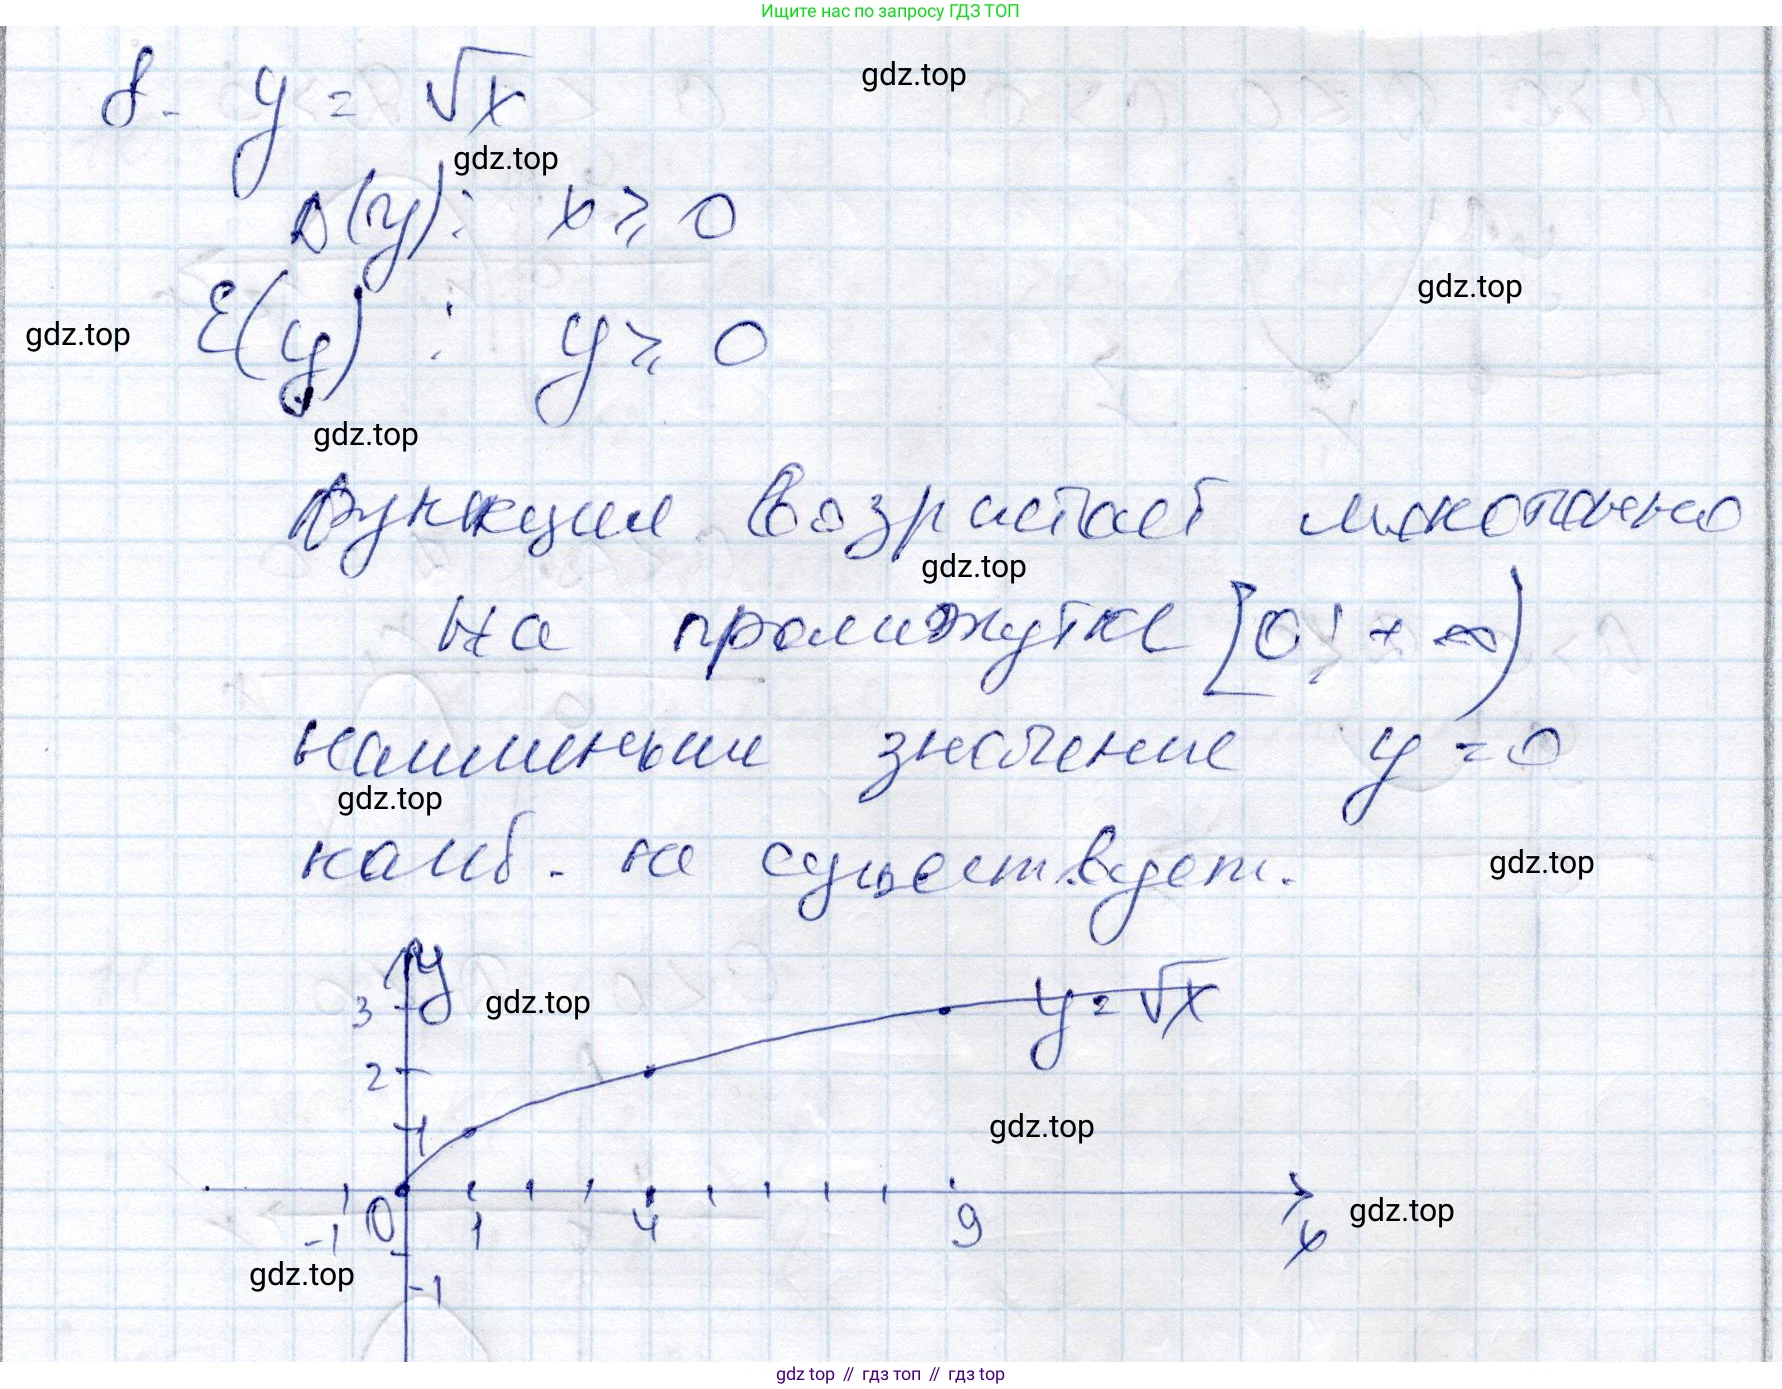 Ищите нас по запросу ГДЗ ТОП
8. y = √x
gdz.top
gdz.top
D(y): x ⩾ 0
gdz.top
E(y): y ⩾ 0
gdz.top
gdz.top
функция возрастает монотонно
gdz.top
на промежутке [0; +∞)
наименьшее значение y = 0
gdz.top
наиб. не существует.
gdz.top
y
3
gdz.top
y = √x
2
1
gdz.top
-1 0 1 4 9 x
gdz.top
gdz.top
-1
gdz top // гдз топ // gdz top